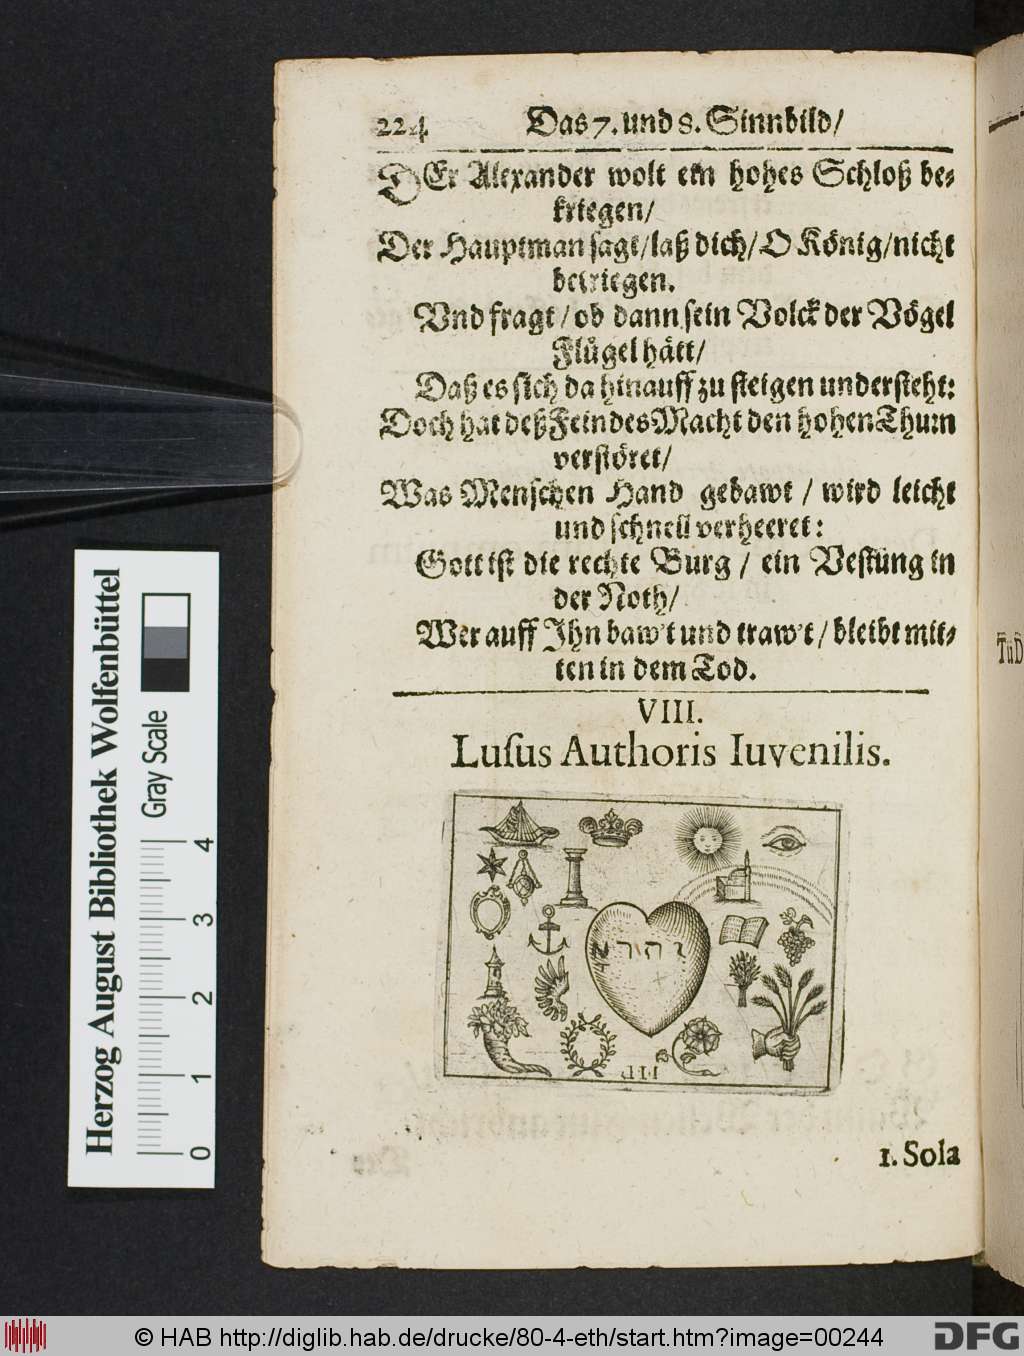 224 Das 7. und 8. Sinnbild/
DEr Alexander wolt ein hohes Schloß be-
kriegen/
Der Hauptman sagt/laß dich/O König/nicht
betriegen.
Vnd fragt/ob dann sein Volck der Vögel
Flügel hätt/
Daß es sich da hinauff zu steigen understeht:
Doch hat deß Feindes Macht den hohen Thurn
verstöret/
Was Menschen Hand gebawt / wird leicht
und schnell verheeret:
Gott ist die rechte Burg / ein Vestung in
der Noth/
Wer auff Jhn baw't und traw't / bleibt mit-
ten in dem Tod.
VIII.
Luſus Authoris Iuvenilis.
III
1. Sola
Herzog August Bibliothek Wolfenbüttel
Gray Scale
0 1 2 3 4
© HAB http://diglib.hab.de/drucke/80-4-eth/start.htm?image=00244
DFG